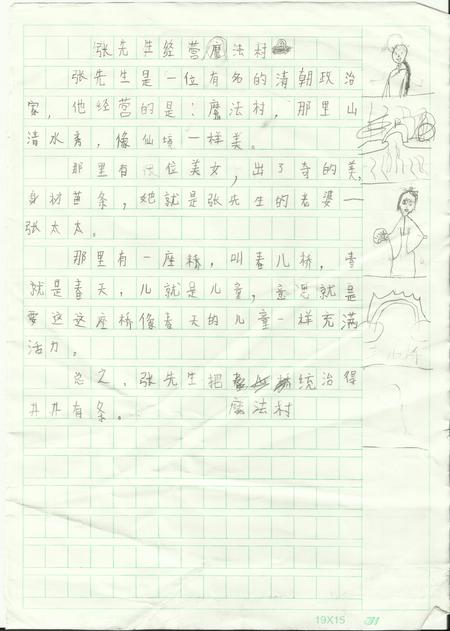 张先生经营魔法村
张先生是一位有名的清朝政治
家，他经营的是：魔法村，那里山
清水秀，像仙境一样美。
那里有一位美女，出了奇的美，
身材苗条，她就是张先生的老婆——
张太太。
那里有一座桥，叫春儿桥，春
就是春天，儿就是儿童，意思就是
要这这座桥像春天的儿童一样充满
活力。
总之，张先生把统治得
魔法村
井井有条。
19X15